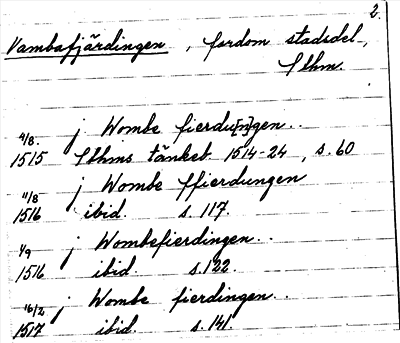 2.
Vambafjärdingen, fordom stadsdel,
Sthm.
4/8. j Wombe fierdu[n]gen..
1515 Sthms tänkeb. 1514-24, s. 60
11/8 j Wombe ffierdungen
1516 ibid. s. 117.
1/9 j Wombefierdingen..
1516 ibid. s. 122
16/2 j Wombe fierdingen..
1517 ibid. s. 141